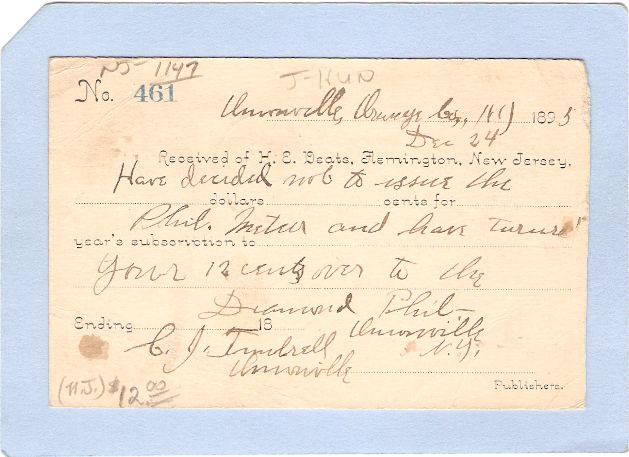 NJ-1147
J-HUN
No. 461
Unionville, Orange Co., NY 1895
Dec 24
Received of H. E. Deats, Flemington, New Jersey,
Have decided not to issue the
dollars cents for
Phil. and have turned
year's subscription to
Your 12 cents over to the
Diamond Phil-
Ending 18
Unionville
C. J.
N.Y.
Unionville
Publishers.
(N.J.) $12.00